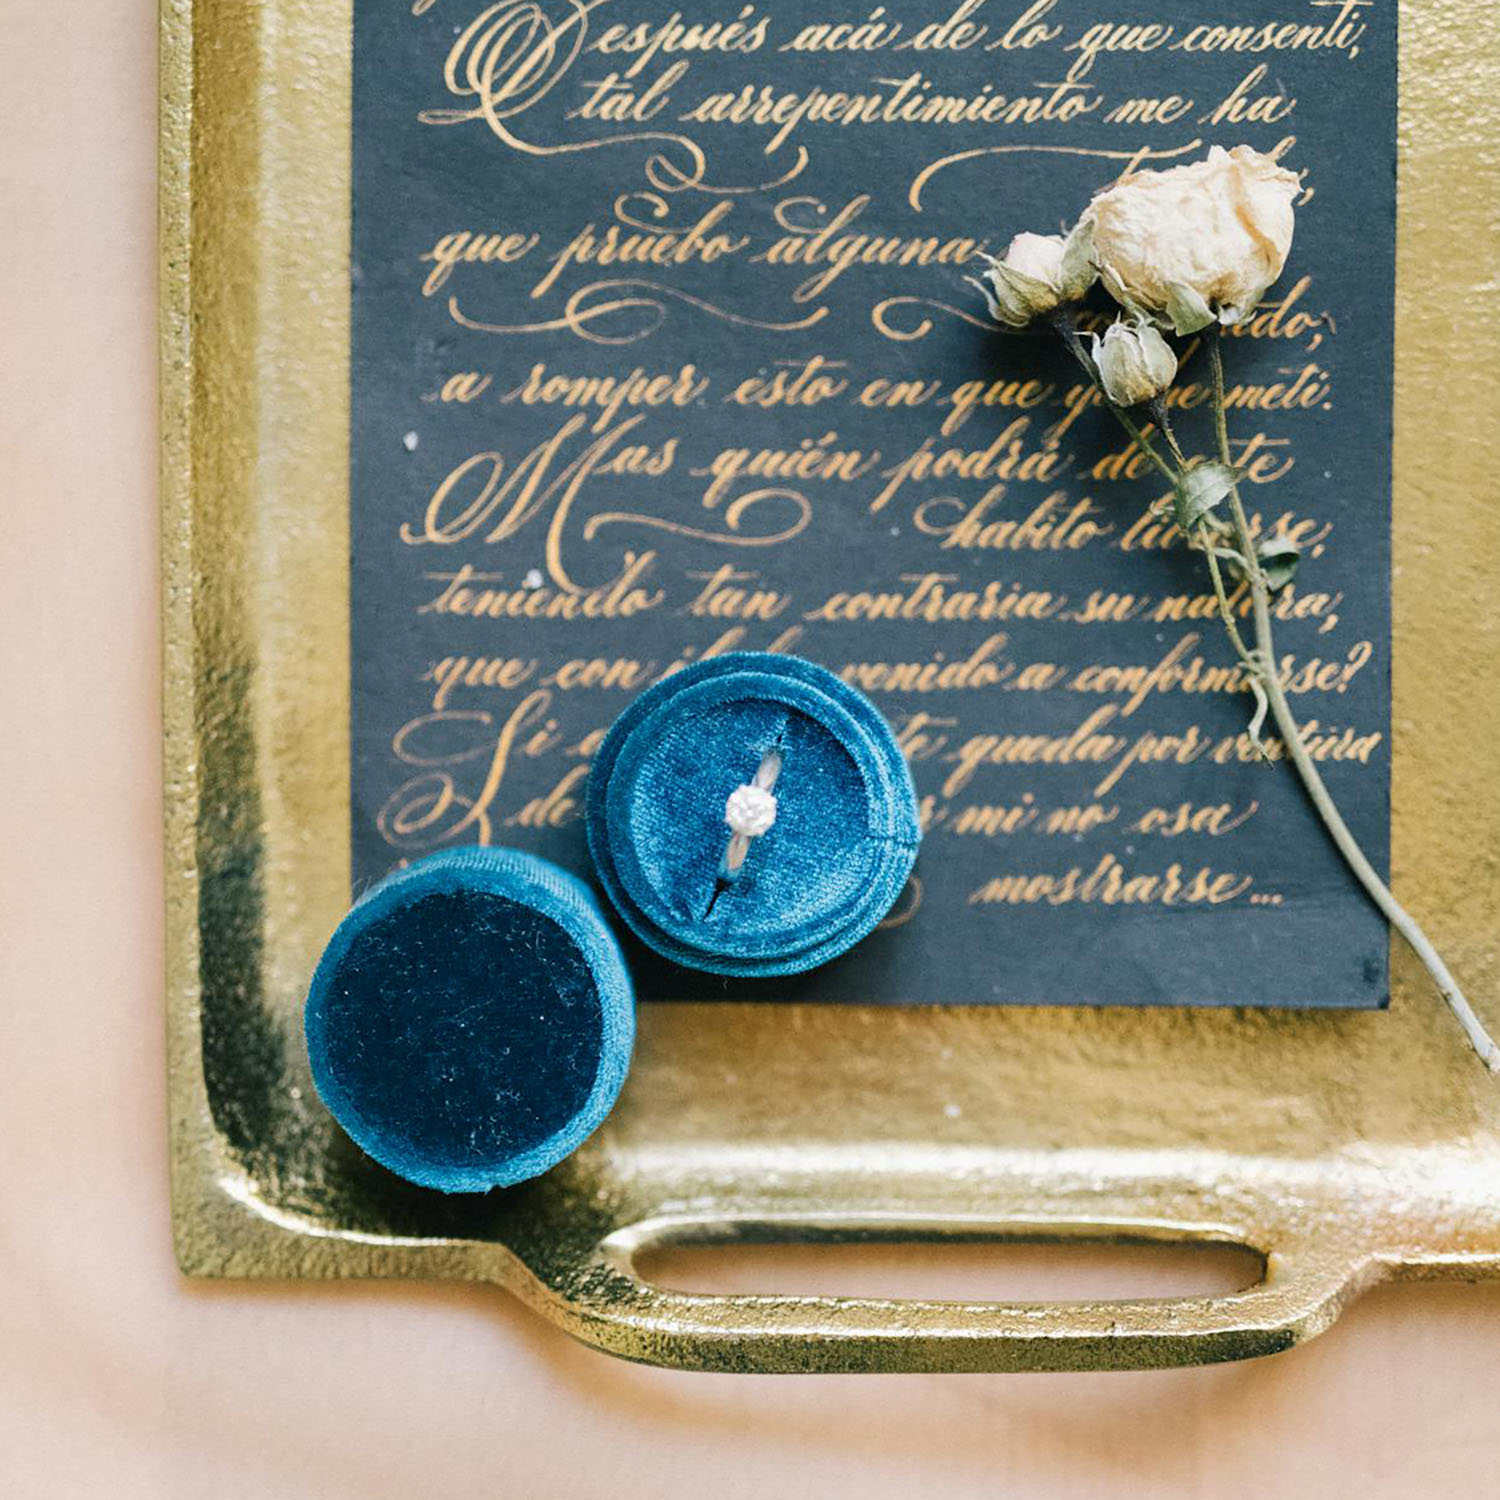 Después acá de lo que consentí,
tal arrepentimiento me ha
que pruebo alguna
a romper esto en que yo me metí.
Mas quién podrá de este
habito
teniendo tan contraria su natura,
que con venido a conformarse?
Si queda por ventura
de mi no osa
mostrarse...